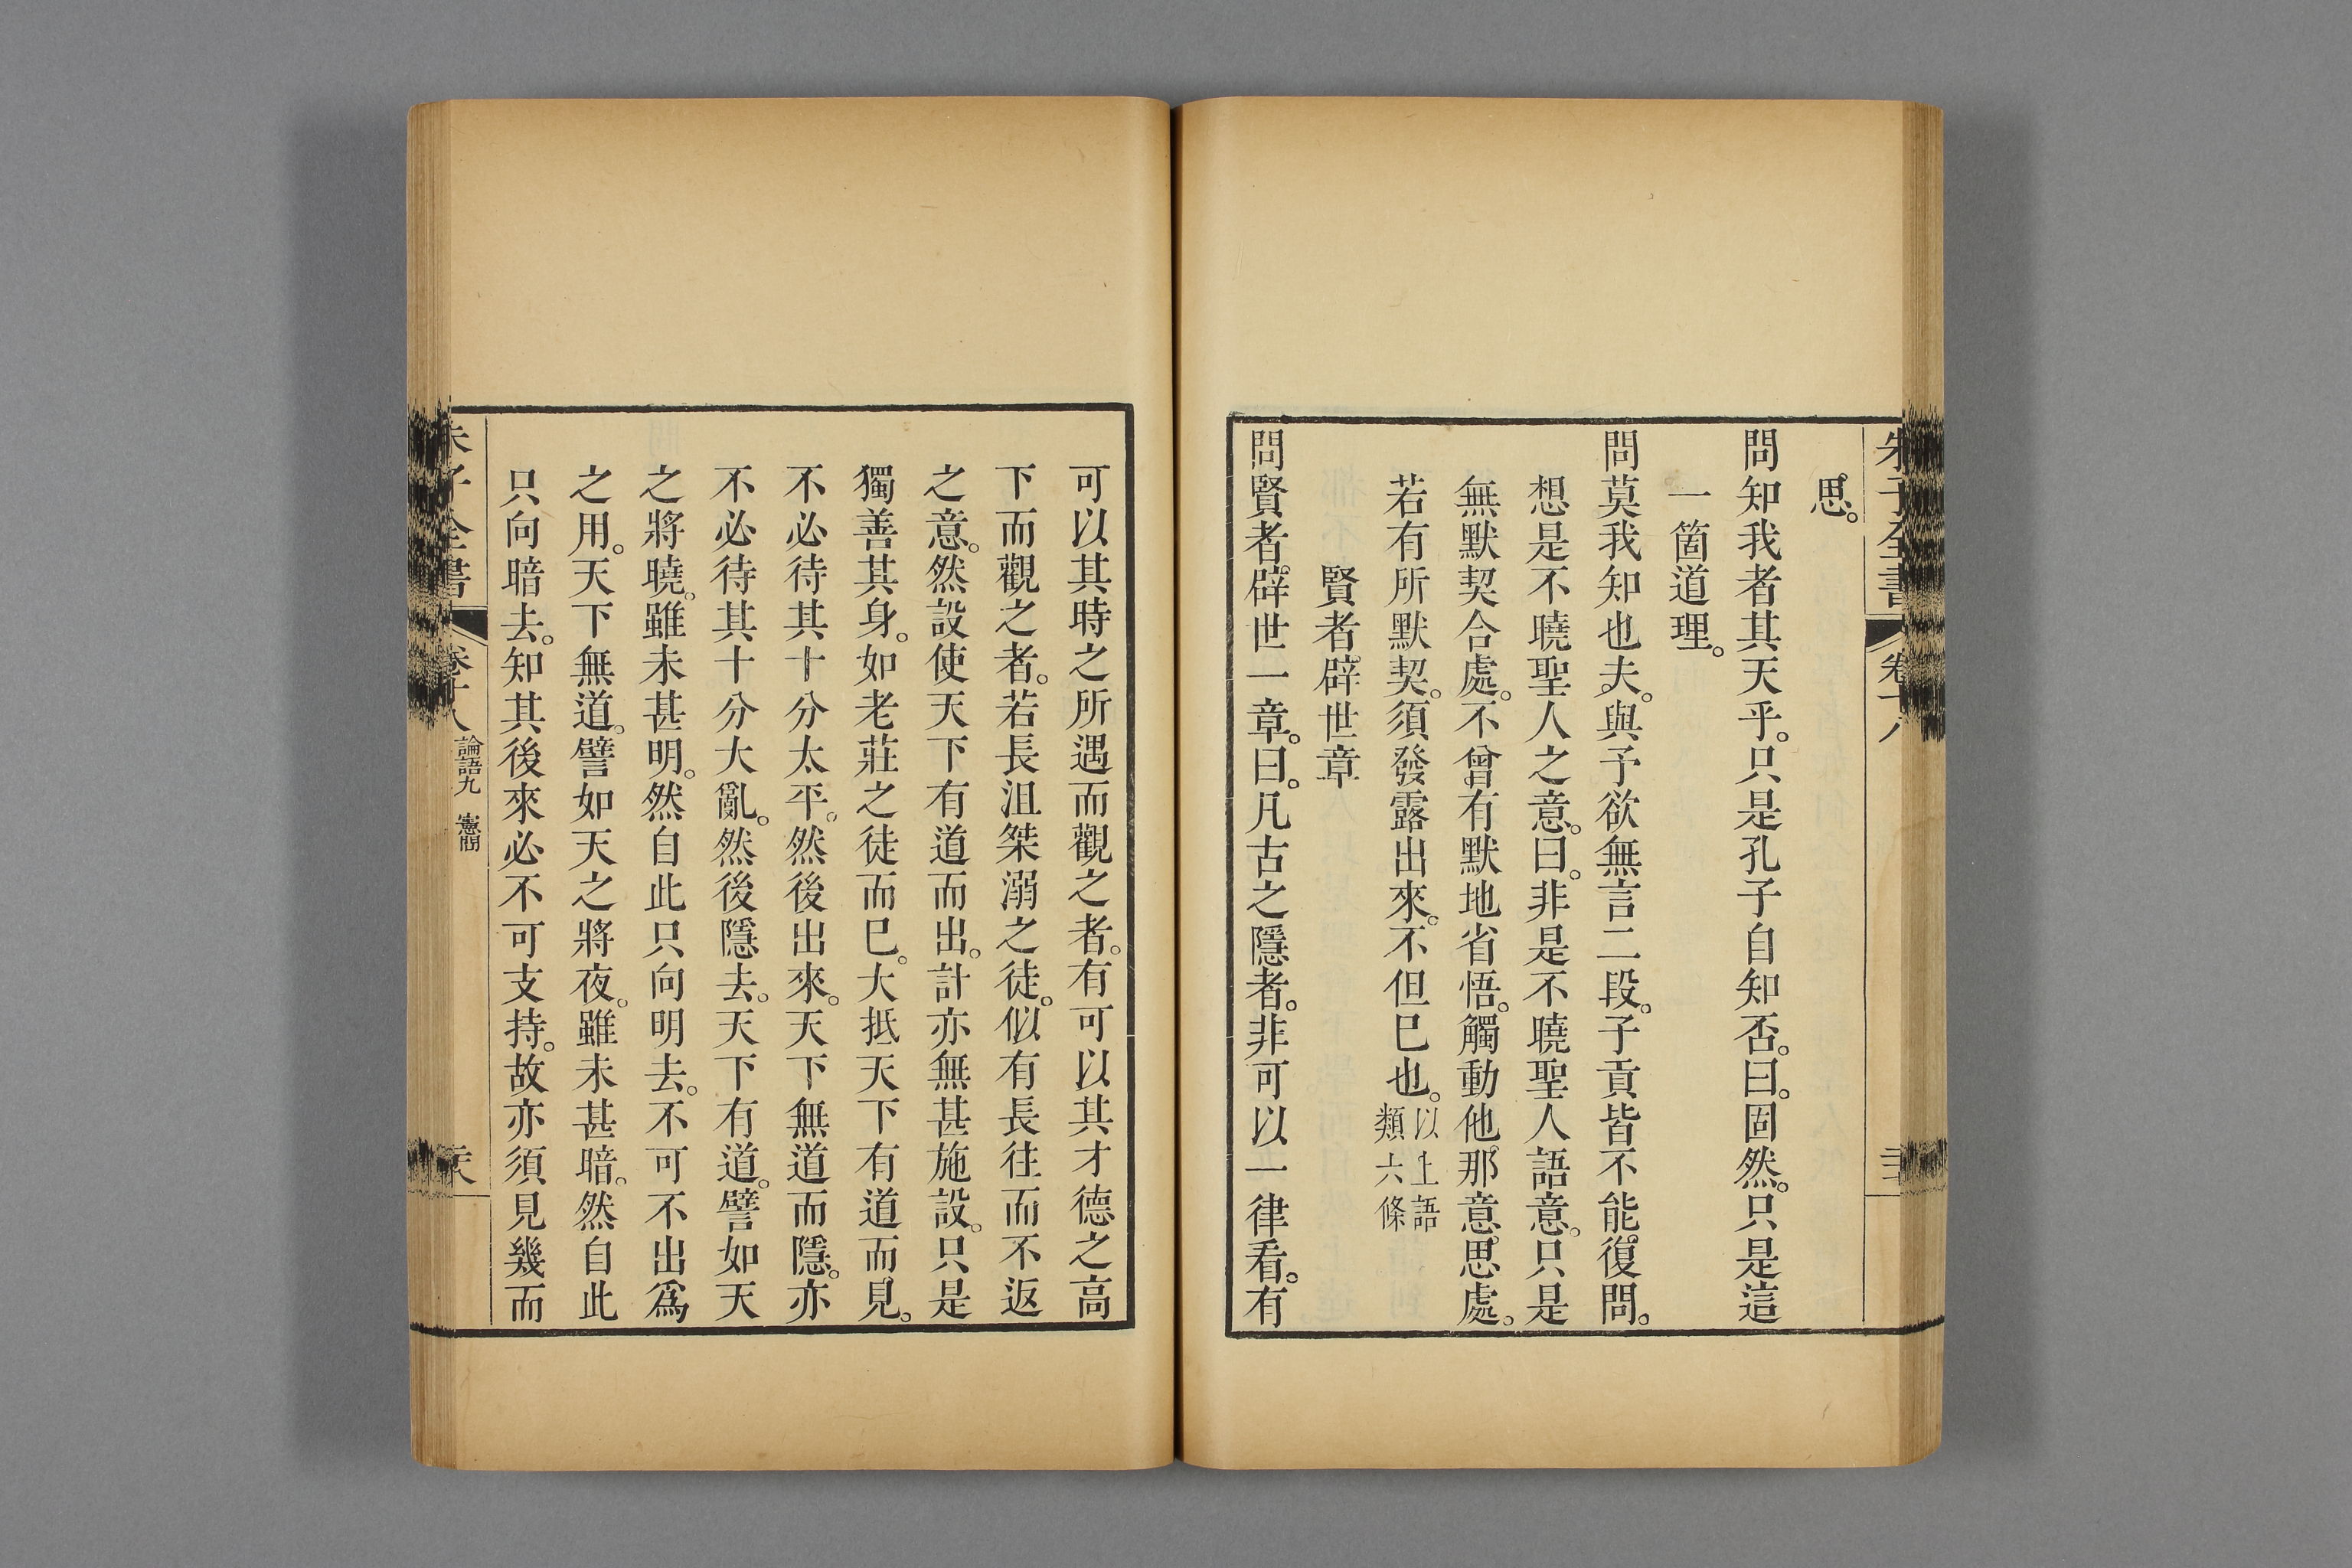 思。
問知我者其天乎。只是孔子自知否。曰。固然。只是這
一箇道理。
問莫我知也夫。與予欲無言二段。子貢皆不能復問。
想是不曉聖人之意。曰。非是不曉聖人語意。只是
無默契合處。不曾有默地省悟。觸動他那意思處。
若有所默契。須發露出來。不但已也。以上語
類六條
賢者辟世章
問賢者辟世一章。曰。凡古之隱者。非可以一律看。有
可以其時之所遇而觀之者。有可以其才德之高
下而觀之者。若長沮桀溺之徒。似有長往而不返
之意。然設使天下有道而出。計亦無甚施設。只是
獨善其身。如老莊之徒而巳。大抵天下有道而見。
不必待其十分太平。然後出來。天下無道而隱。亦
不必待其十分大亂。然後隱去。天下有道。譬如天
之將曉。雖未甚明。然自此只向明去。不可不出爲
之用。天下無道。譬如天之將夜。雖未甚暗。然自此
只向暗去。知其後來必不可支持。故亦須見幾而
朱子全書 卷十八 論語九 憲問